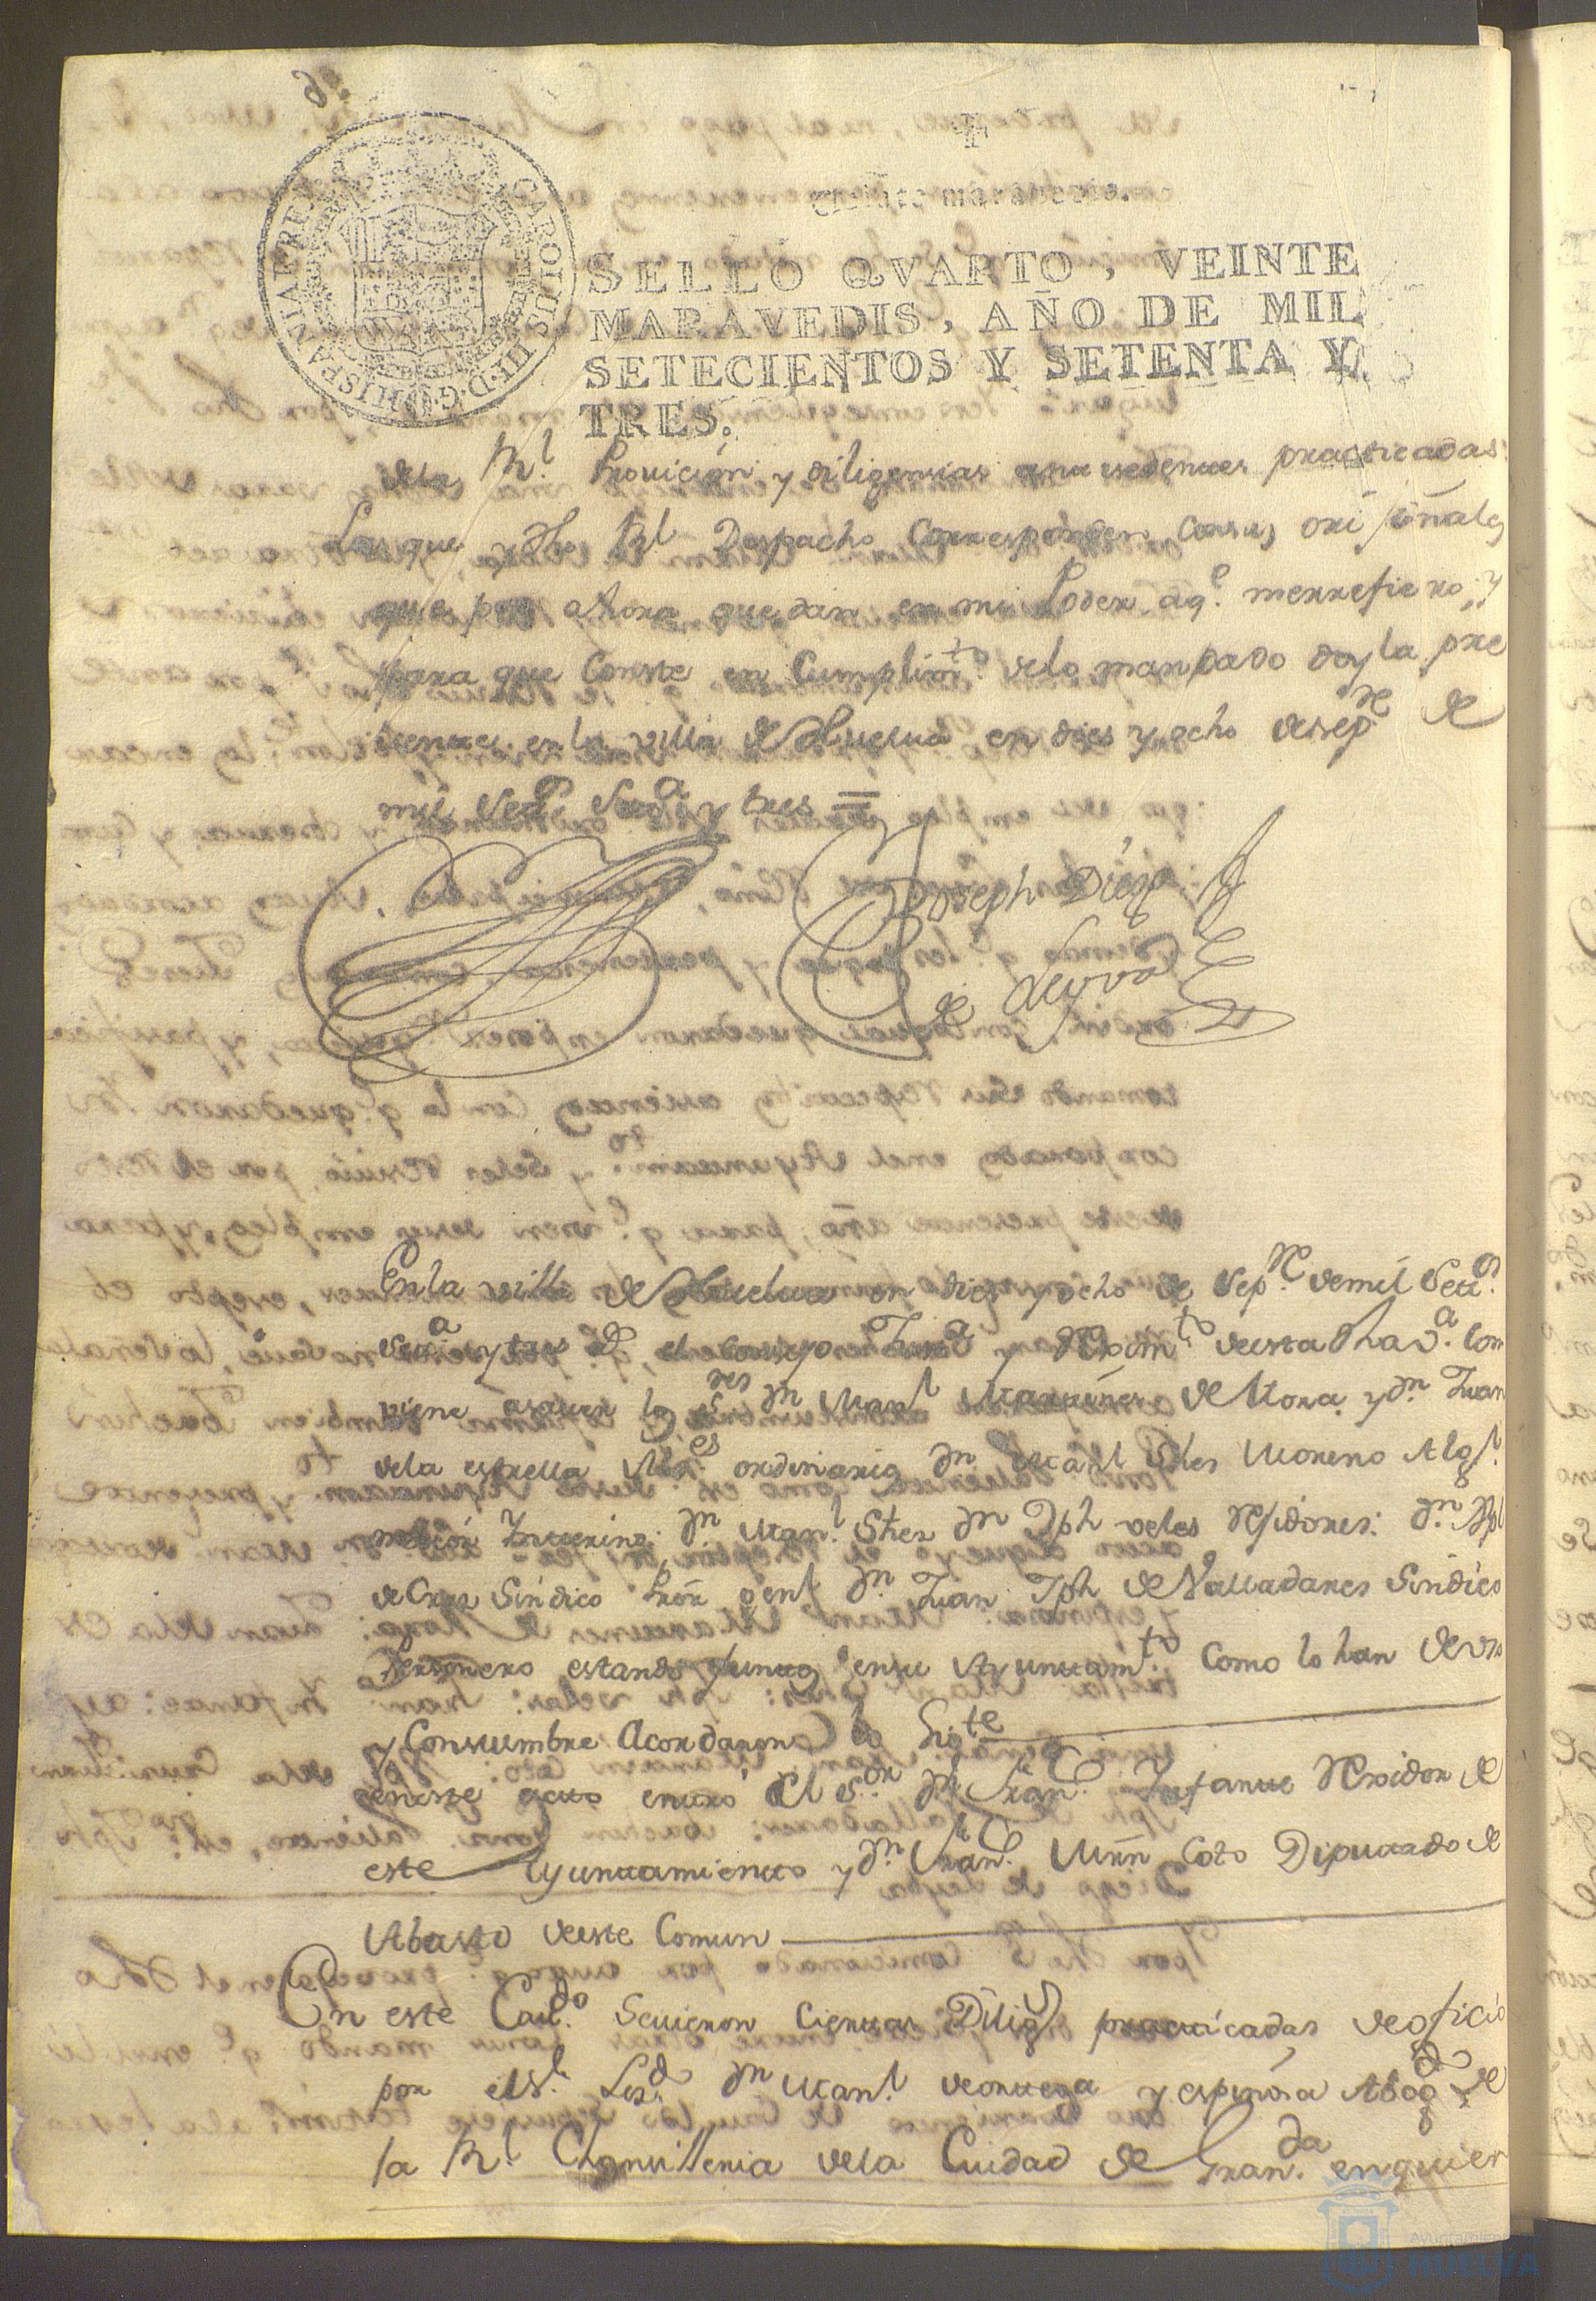 Veinte maravedis.
SELLO QVARTO, VEINTE
MARAVEDIS, AÑO DE MIL
SETECIENTOS Y SETENTA Y
TRES.
CAROLUS III D G HISPANIAR REX
dela Rl. Provición y diligencias antesedentes practicadas
Las que y dho Rl Despacho Corresponden Consus orijinales
que por ahora quedan en mi Poder aq.e merrefiero; y
para que Conste en Cumplim.to delo mandado doy la pre
sente en la villa de Huelva en dies y ocho de sep.re de
mil Set.s Set.a y tres =
Joseph Diego
de Leyva
En la villa de Huelva en dies y ocho de Sep.re demil Set.s
set.a y tres el consejo Just.a y Rexim.to de esta dha v.a Con
viene asaver los S.res Dn Man.l Martines de Mora y dn Juan
dela estrella Alcs.es ordinarios dn Man.l Sches Moreno Alg.l
maior Ynterino: dn Man.l Sches dn Jph veles Rejidores: dn
de Cruz Síndico Prór gen.l dn Juan Jph de Valladares Síndico
Personero estando juntos ensu Ayuntam.to Como lo han de vso
y Constumbre Acordaron lo Sig.te
en este acto entró el S.or dn Fran.co Ynfante Rexidor de
este Ayuntamiento y dn Fran.co Mrn Coto Diputado de
Abasto deeste Comun
En este Cavl.do Sevieron Ciertas Dilig.s practicadas de oficio
por el S.r Lis.do dn Man.l de ortega y espinosa Abog.do de
la Rl Chansilleria dela Ciudad de Gran.da en quien
Ayuntamiento
HUELVA